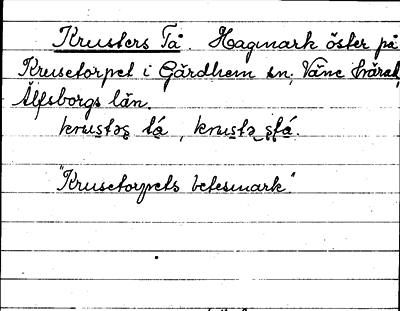 Krusters Tå. Hagmark öster på
Krusetorpet i Gärdhem sn, Väne härad,
Älfsborgs län.
krustəs tå, krustə stå.
"Krusetorpets betesmark".